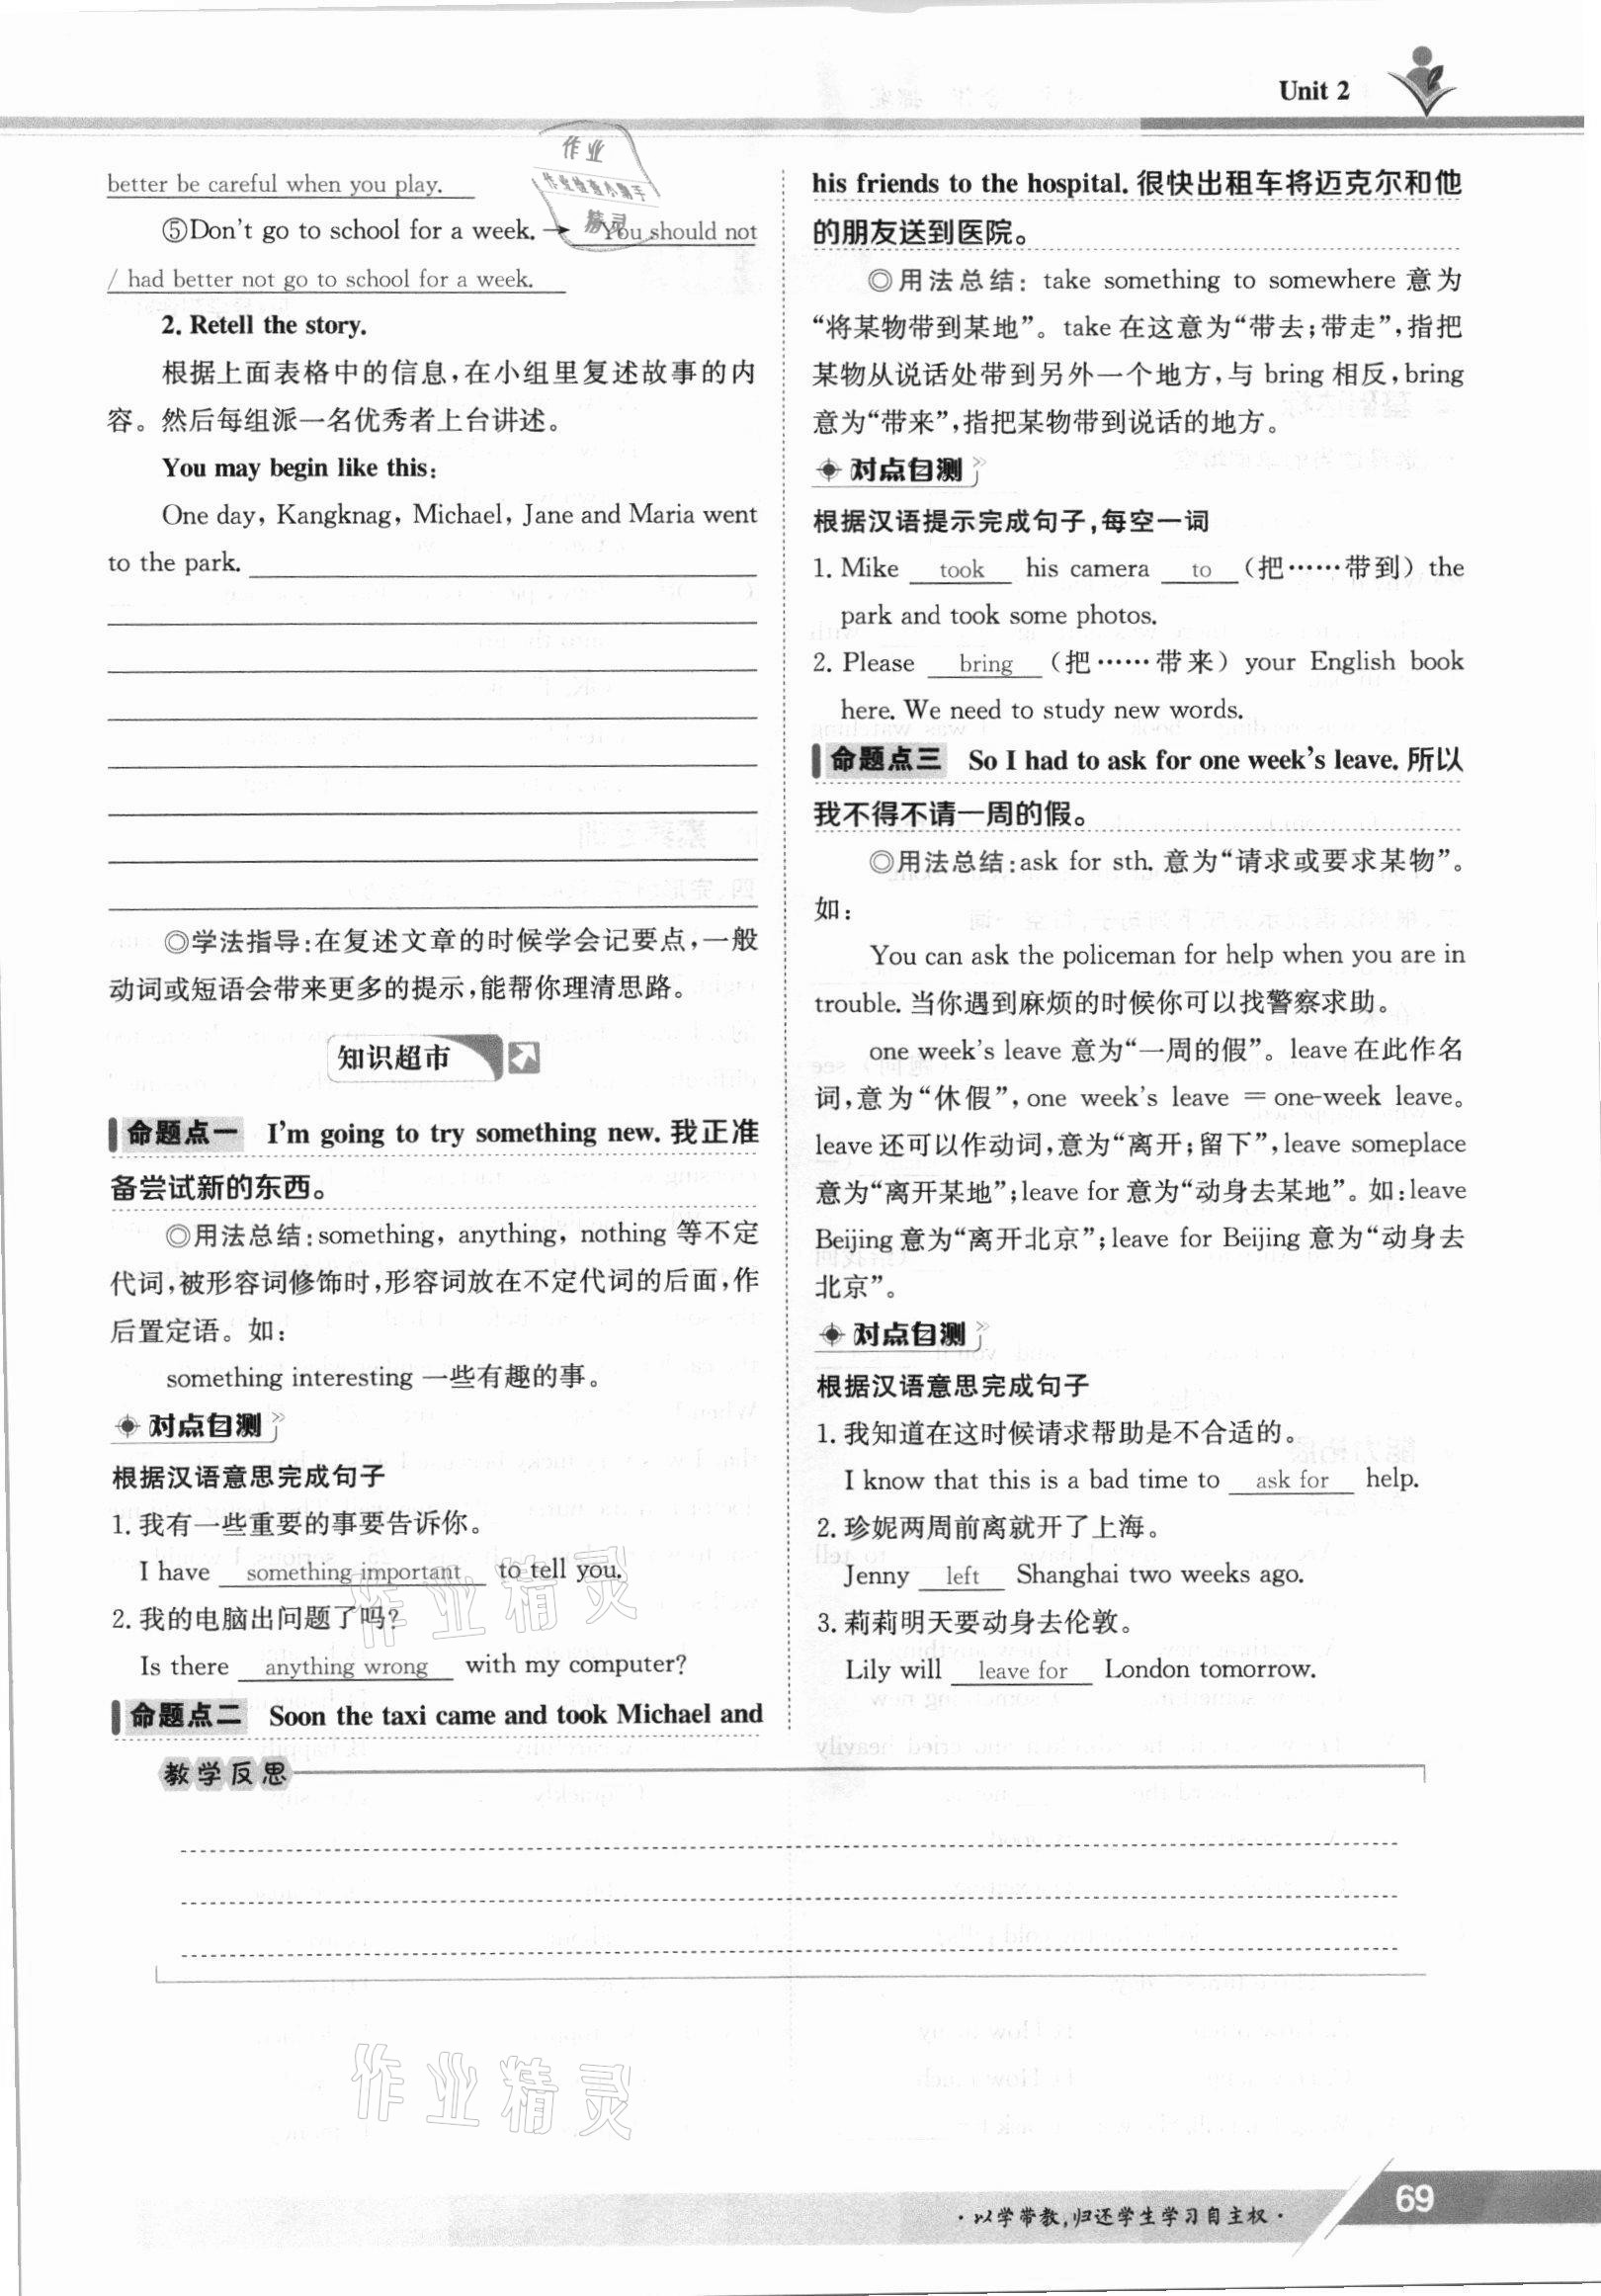 Unit 2
better be careful when you play.
⑤Don't go to school for a week. → You should not
/ had better not go to school for a week.
2. Retell the story.
根据上面表格中的信息,在小组里复述故事的内
容。然后每组派一名优秀者上台讲述。
You may begin like this:
One day, Kangknag, Michael, Jane and Maria went
to the park.
◎学法指导:在复述文章的时候学会记要点,一般
动词或短语会带来更多的提示,能帮你理清思路。
知识超市
命题点一 I'm going to try something new. 我正准
备尝试新的东西。
◎用法总结:something, anything, nothing 等不定
代词,被形容词修饰时,形容词放在不定代词的后面,作
后置定语。如:
something interesting 一些有趣的事。
对点自测
根据汉语意思完成句子
1. 我有一些重要的事要告诉你。
I have something important to tell you.
2. 我的电脑出问题了吗?
Is there anything wrong with my computer?
命题点二 Soon the taxi came and took Michael and
his friends to the hospital. 很快出租车将迈克尔和他
的朋友送到医院。
◎用法总结: take something to somewhere 意为
“将某物带到某地”。take 在这意为“带去;带走”,指把
某物从说话处带到另外一个地方,与 bring 相反,bring
意为“带来”,指把某物带到说话的地方。
对点自测
根据汉语提示完成句子,每空一词
1. Mike took his camera to (把……带到) the
park and took some photos.
2. Please bring (把……带来) your English book
here. We need to study new words.
命题点三 So I had to ask for one week's leave. 所以
我不得不请一周的假。
◎用法总结:ask for sth. 意为“请求或要求某物”。
如:
You can ask the policeman for help when you are in
trouble. 当你遇到麻烦的时候你可以找警察求助。
one week's leave 意为“一周的假”。leave 在此作名
词,意为“休假”, one week's leave = one-week leave。
leave 还可以作动词,意为“离开;留下”, leave someplace
意为“离开某地”;leave for 意为“动身去某地”。如:leave
Beijing 意为“离开北京”;leave for Beijing 意为“动身去
北京”。
对点自测
根据汉语意思完成句子
1. 我知道在这时候请求帮助是不合适的。
I know that this is a bad time to ask for help.
2. 珍妮两周前离就开了上海。
Jenny left Shanghai two weeks ago.
3. 莉莉明天要动身去伦敦。
Lily will leave for London tomorrow.
教学反思
作业精灵
作业精灵
·以学带教,归还学生学习自主权·
69
作业
作业检查小助手
精灵